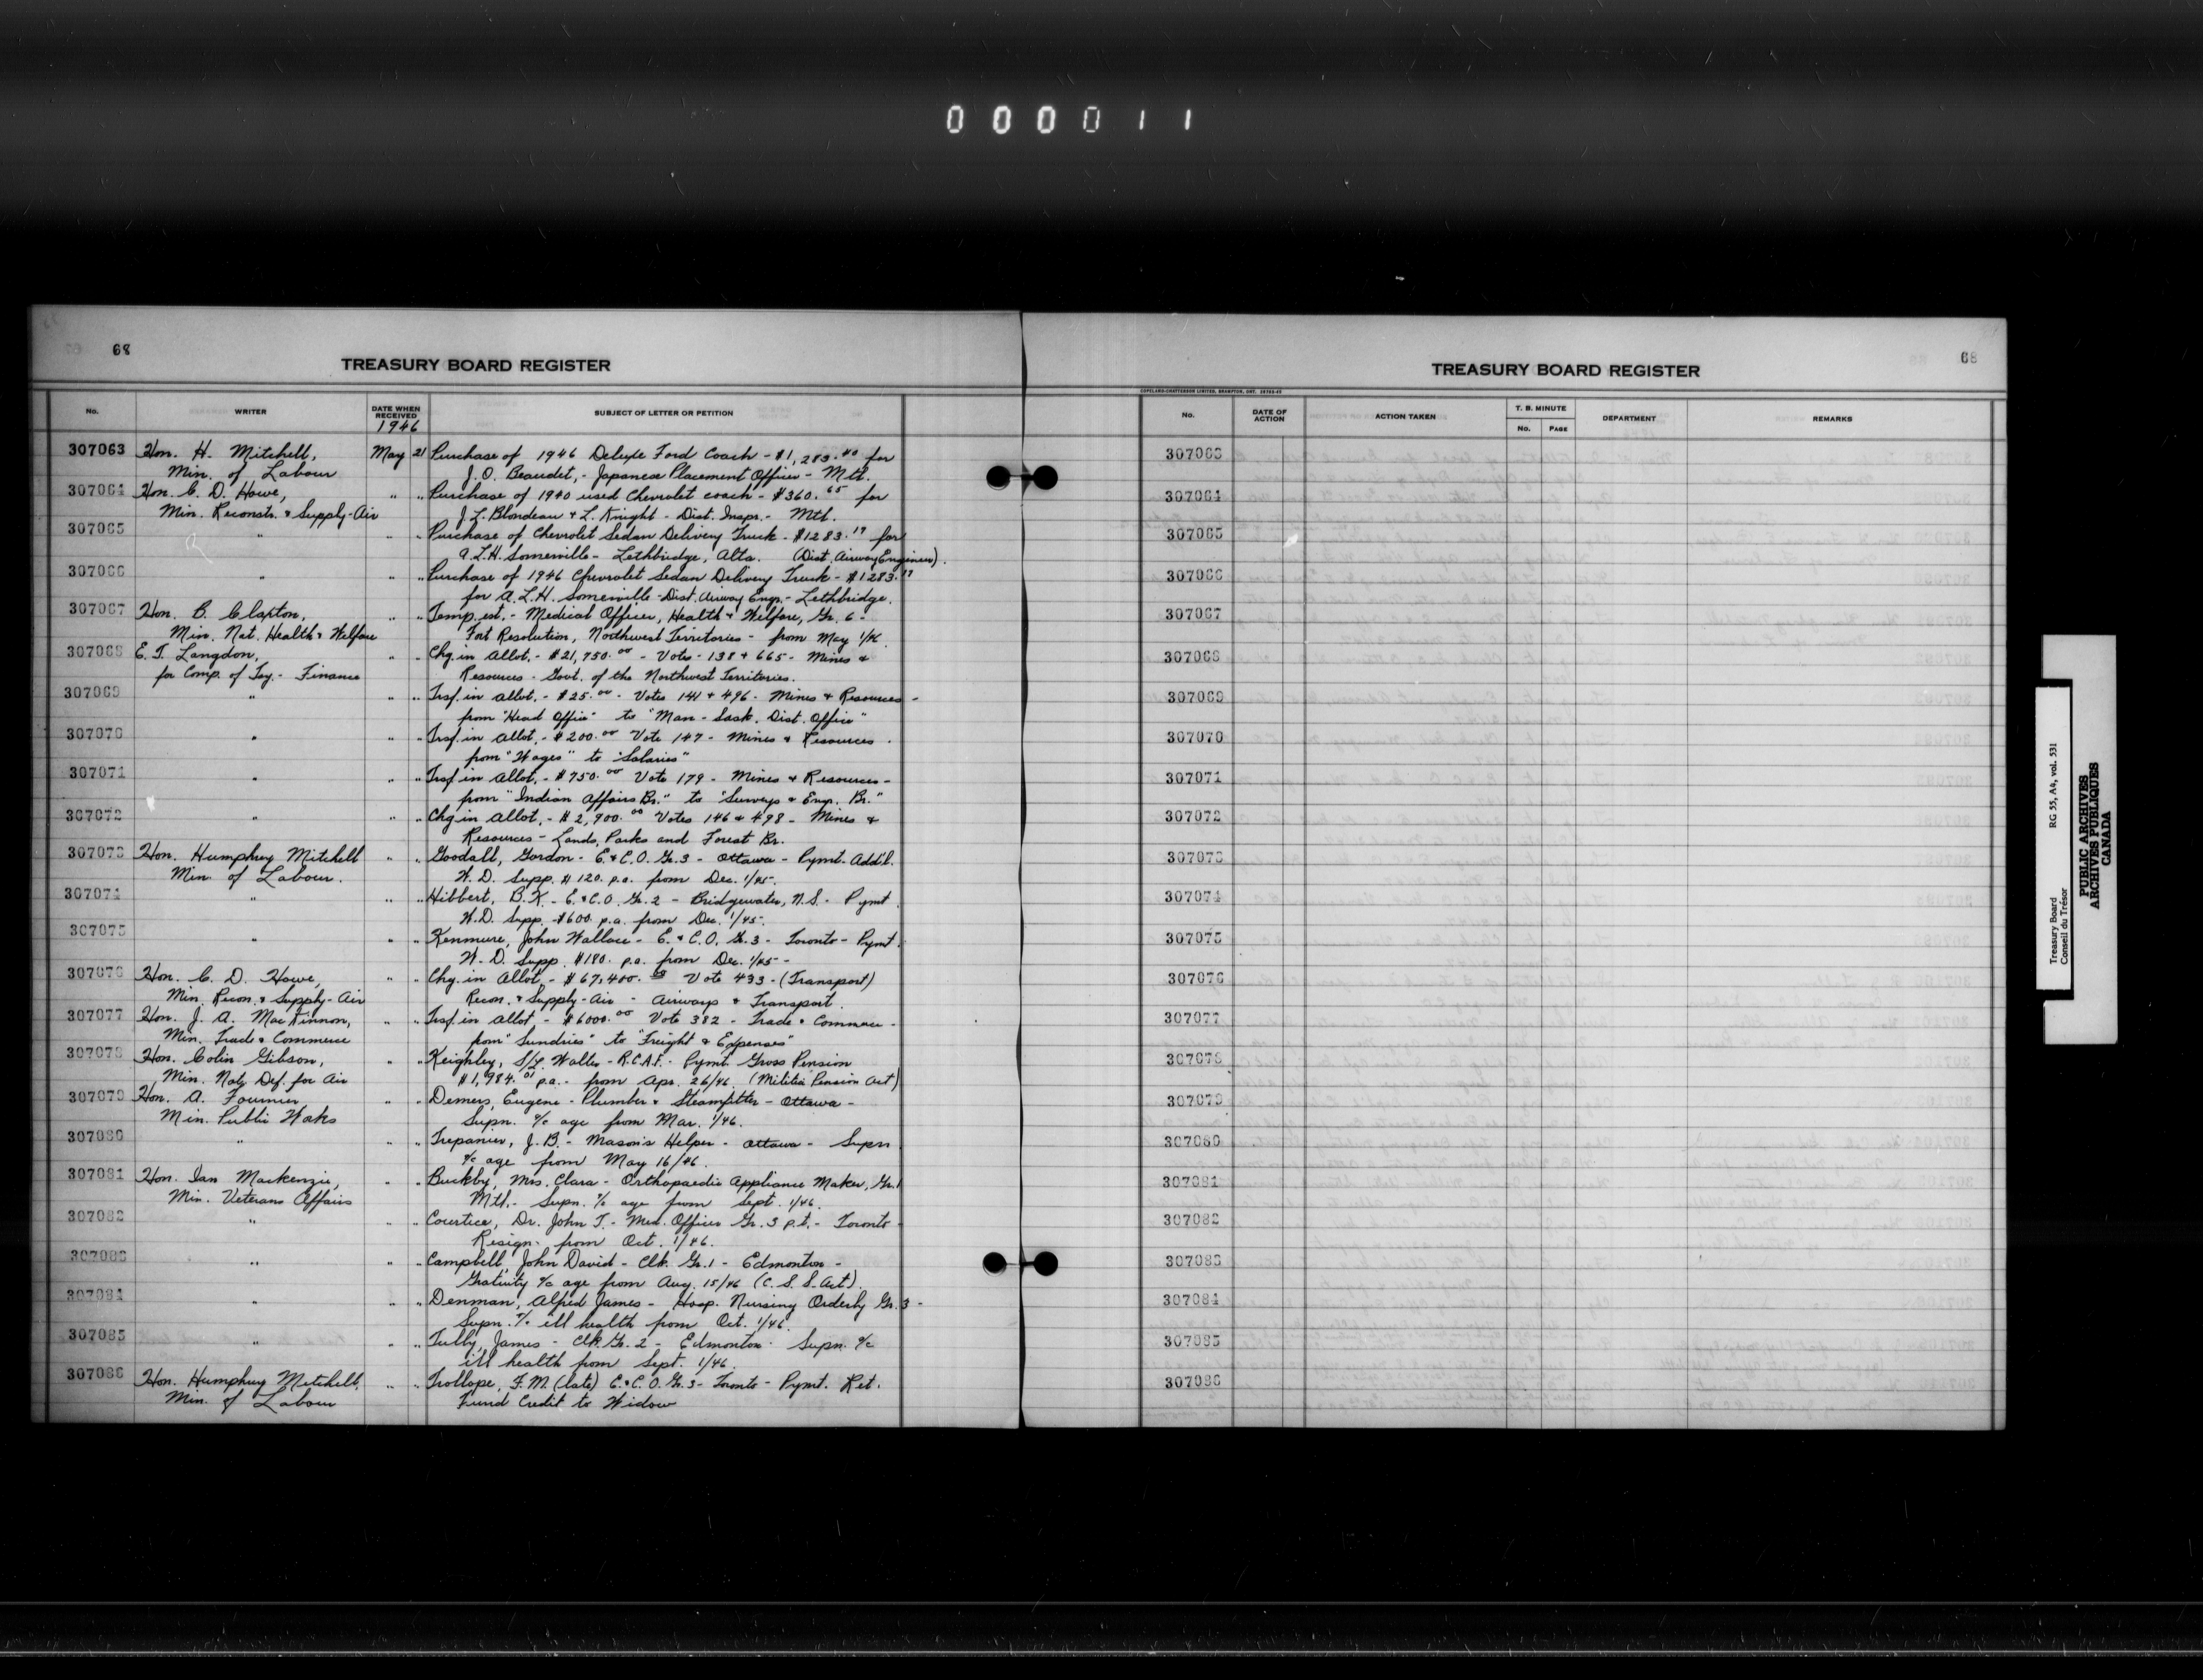 000011
68
TREASURY BOARD REGISTER
No. WRITER DATE WHEN RECEIVED SUBJECT OF LETTER OR PETITION
1946
307063 Hon. H. Mitchell, May 21 Purchase of 1946 Deluxe Ford Coach - $1,283.40 for
Min. of Labour J. O. Beaudet, - Japanese Placement Officer - Mtl.
307064 Hon. C. D. Howe, " " Purchase of 1940 used Chevrolet coach - $360.65 for
Min. Reconstr. & Supply-Air J. L. Blondeau & L. Knight - Dist. Inspr. - Mtl.
307065 " " " Purchase of Chevrolet Sedan Delivery Truck - $1283.19 for
A.L.H. Somerville - Lethbridge, Alta. (Dist. Airway Engineer).
307066 " " " Purchase of 1946 Chevrolet Sedan Delivery Truck - $1283.19
for A.L.H. Somerville - Dist. Airway Engr. - Lethbridge.
307067 Hon. B. Claxton, " " Temp. est. - Medical Officer, Health & Welfare, Gr. 6 -
Min. Nat. Health & Welfare Fort Resolution, Northwest Territories - from May 1/46.
307068 E. T. Langdon, " " Chg. in Allot. - $21,750.00 - Votes - 138 & 665 - Mines &
for Comp. of Tsy. - Finance Resources - Govt. of the Northwest Territories.
307069 " " " Trsf. in allot. - $25.00 - Votes 141 & 496 - Mines & Resources -
from "Head Office" to "Man - Sask. Dist. Office"
307070 " " " Trsf. in Allot. - $200.00 Vote 147 - Mines & Resources -
from "Wages" to "Salaries"
307071 " " " Trsf. in Allot. - $750.00 Vote 179 - Mines & Resources -
from "Indian Affairs Br." to "Surveys & Engr. Br."
307072 " " " Chg in Allot. - $2,900.00 Votes 146 & 498 - Mines &
Resources - Lands, Parks and Forest Br.
307073 Hon. Humphrey Mitchell " " Goodall, Gordon - E. & C.O. Gr. 3 - Ottawa - Pymt. Add'l.
Min. of Labour. W. D. Supp. $120. p.a. from Dec. 1/45.
307074 " " " Hibbert, B.K. - E. & C.O. Gr. 2 - Bridgewater, N.S. - Pymt.
W.D. Supp. $600. p.a. from Dec. 1/45.
307075 " " " Kenmure, John Wallace - E. & C.O. Gr. 3 - Toronto - Pymt.
W. D. Supp. $180. p.a. from Dec. 1/45 -
307076 Hon. C. D. Howe, " " Chg. in Allot. - $67,400.00 Vote 433 - (Transport)
Min. Recon. & Supply-Air Recon. & Supply-Air - Airways & Transport.
307077 Hon. J. A. MacKinnon, " " Trsf. in Allot - $6000.00 Vote 382 - Trade & Commerce -
Min. Trade & Commerce from "Sundries" to "Freight & Expenses"
307078 Hon. Colin Gibson, " " Keighley, S/L. Walter - R.C.A.F. - Pymt. Gross Pension
Min. Natl. Def. for Air $1,984.01 p.a. - from Apr. 26/46. (Militia Pension Act)
307079 Hon. A. Fournier " " Demers, Eugene - Plumber & Steamfitter - Ottawa -
Min. Public Works Supn. a/c age from Mar. 1/46.
307080 " " " Trepanier, J.B. - Mason's Helper - Ottawa - Supn
a/c age from May 16/46.
307081 Hon. Ian Mackenzie, " " Buckby, Mrs. Clara - Orthopaedic Appliance Maker, Gr. 1
Min. Veterans Affairs Mtl. - Supn. a/c age from Sept. 1/46.
307082 " " " Courtice, Dr. John T. - Med. Officer Gr. 3 p.t. - Toronto -
Resign. from Oct. 1/46.
307083 " " " Campbell, John David - Clk. Gr. 1 - Edmonton -
Gratuity a/c age from Aug. 15/46 (C. S. S. Act).
307084 " " " Denman, Alfred James - Hosp. Nursing Orderly Gr. 3 -
Supn. a/c ill health from Oct. 1/46.
307085 " " " Tully, James - Clk. Gr. 2 - Edmonton - Supn. a/c
ill health from Sept. 1/46.
307086 Hon. Humphrey Mitchell, " " Trollope, F.M. (late) E. & C.O. Gr. 3 - Toronto - Pymt. Ret.
Min. of Labour Fund Credit to Widow
68
TREASURY BOARD REGISTER
COPELAND-CHATTERSON LIMITED, BRAMPTON, ONT.
No. DATE OF ACTION ACTION TAKEN T. B. MINUTE DEPARTMENT REMARKS
No. PAGE
307063
307064
307065
307066
307067
307068
307069
307070
307071
307072
307073
307074
307075
307076
307077
307078
307079
307080
307081
307082
307083
307084
307085
307086
Treasury Board RG 55, A4, vol. 531
Conseil du Trésor
PUBLIC ARCHIVES
ARCHIVES PUBLIQUES
CANADA